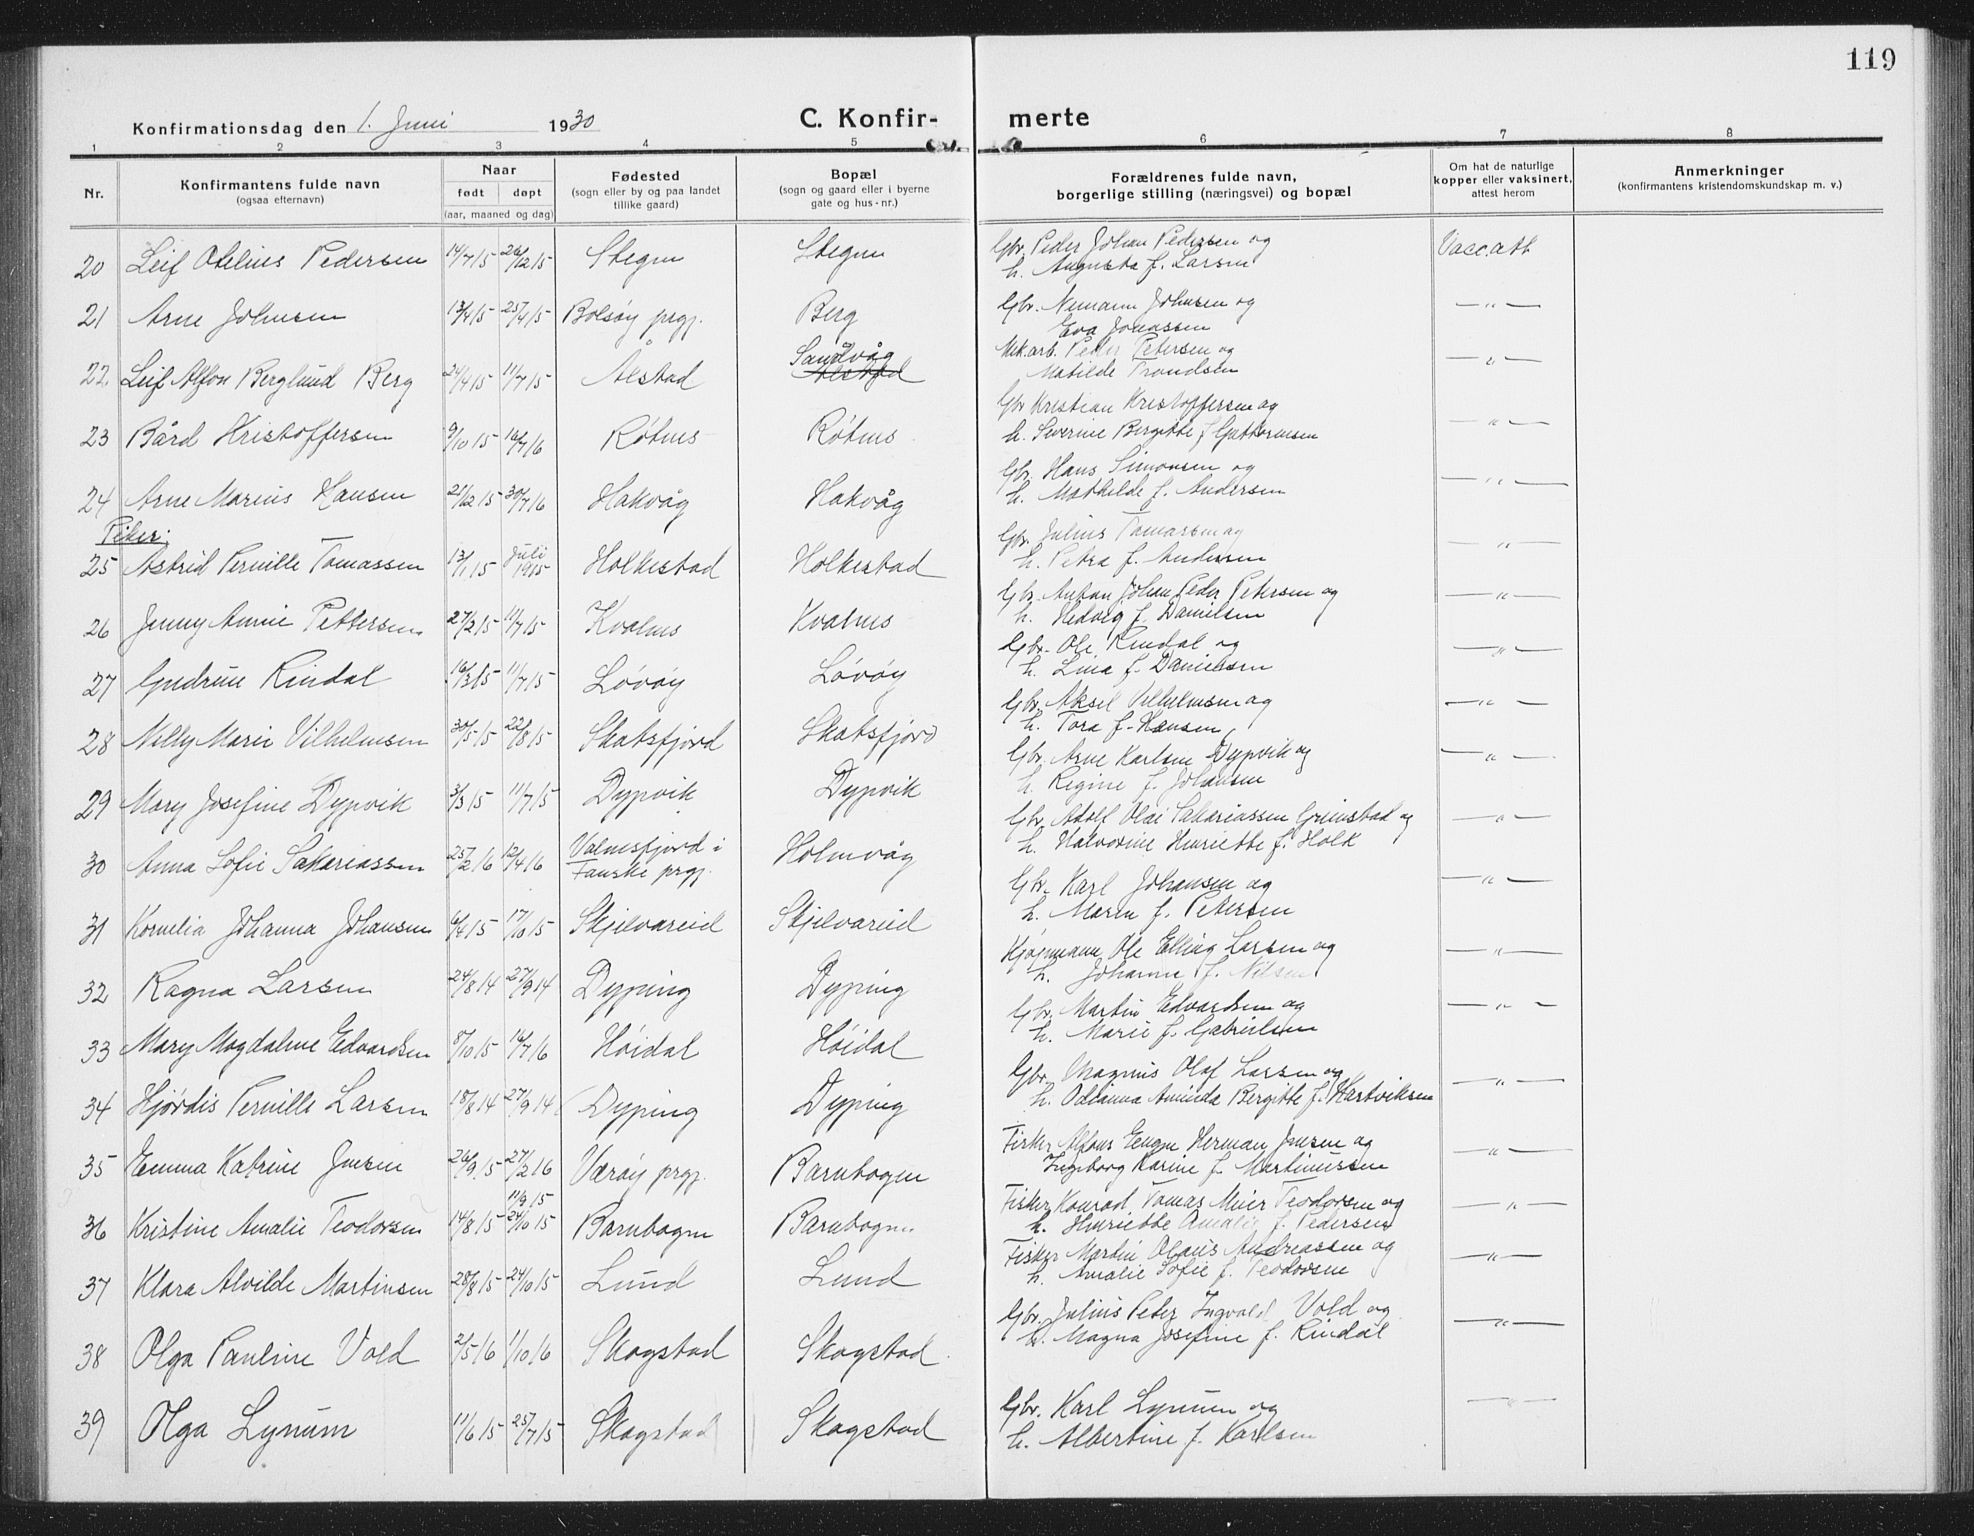 119
Konfirmationsdag den 1. Juni 1930 C. Konfir- merte
1 2 3 4 5 6 7 8
Nr. Konfirmantens fulde navn (ogsaa efternavn) Naar født døpt (aar, maaned og dag) Fødested (sogn eller by og paa landet tillike gaard) Bopæl (sogn og gaard eller i byerne gate og hus-nr.) Forældrenes fulde navn, borgerlige stilling (næringsvei) og bopæl Om hat de naturlige kopper eller vaksinert, attest herom Anmerkninger (konfirmantens kristendomskundskap m. v.)
20 Leif Otelius Pedersen 14/7 15 26/12 15 Stegen Stegen Gbr. Peder Johan Pedersen og Vacc.att
h. Augusta f. Larsen
21 Arne Johnsen 13/4 15 25/4 15 Bolsøy prgj. Berg Gbr. Nemann Johnsen og — " —
Eva Jonassen
22. Leif Alfon Berglund Berg 24/4 15 11/7 15 Ålstad Sandvåg Ålstad Mek.arb. Peder Petersen og — " —
Matilde Trondsen
23 Bård Kristoffersen 9/10 15 16/7 16 Røtnes Røtnes Gbr Kristian Kristoffersen og — " —
h. Severine Bergitte f Guttormsen
24 Arne Marius Hansen 21/12 15 30/7 16 Hakvåg Hakvåg Gbr. Hans Simonsen og — " —
h. Mathilde f. Andersen
Piker:
25 Astrid Pernille Tomassen 13/1 15 Juli 1915 Holkestad Holkestad Gbr. Julius Tomassen og — " —
h. Petra f. Andersen
26 Jenny Annie Pettersen 27/2 15 11/7 15 Kvalnes Kvalnes Gbr. Anton Johan Peder Petersen og — " —
h. Hedvig f. Danielsen
27 Gudrun Rindal 16/3 15 11/7 15 Løvøy Løvøy Gbr. Ole Rindal og — " —
h. Lina f. Danielsen
28 Nelly Marie Vilhelmsen 30/5 15 22/8 15 Skotsfjord Skotsfjord Gbr. Aksel Vilhelmsen og — " —
h. Tora f. Hansen
29 Mary Josefine Dypvik 3/3 15 11/7 15 Dypvik Dypvik Gbr. Arne Karlsen Dypvik og — " —
h. Regine f. Johansen
30 Anna Sofie Sakariassen 25/2 16 12/4 16 Valnesfjord i Fauske prgj. Holmvåg Gbr. Adolf Olai Sakariassen Grimstad og — " —
h. Halvorine Henriette f. Holk
31 Kornelia Johanna Johansen 6/4 15 17/10 15 Skjelvareid Skjelvareid Gbr. Karl Johansen og — " —
h. Maren f. Petersen
32 Ragna Larsen 24/8 14 27/9 14 Dyping Dyping Kjøpmann Ole Elling Larsen og — " —
h. Johanne f. Nilsen
33 Mary Magdalene Edvardsen 8/10 15 16/7 16 Høidal Høidal Gbr. Martin Edvardsen og — " —
h. Marie f. Gabrielsen
34 Hjørdis Pernille Larsen 18/8 14 27/9 14 Dyping Dyping Gbr. Magnus Olaf Larsen og — " —
h. Odianna Aminda Bergitte f. Hartviksen
35 Emma Katrine Jensen 26/9 15 27/2 16 Værøy prgj. Barnbogen Fisker Alfons Eugen Herman Jensen og — " —
Ingeborg Karine f. Martinussen
36 Kristine Amalie Teodorsen 14/8 15 11/9 15 24/10 15 Barnbogen Barnbogen Fisker Konrad Tomas Meier Teodorsen og — " —
h. Henriette Amalie f. Pedersen
37 Klara Alvilde Martinsen 28/8 15 24/10 15 Lund Lund Fisker Martin Olaus Andreassen og — " —
h. Amalie Sofie f. Teodorsen
38 Olga Pauline Vold 2/5 16 1/10 16 Skogstad Skogstad Gbr. Julius Peter Ingvald Vold og — " —
h. Magna Josefine f. Rindal
39 Olga Lynum 11/6 15 25/7 15 Skogstad Skogstad Gbr. Karl Lynum og — " —
h. Albertine f. Karlsen